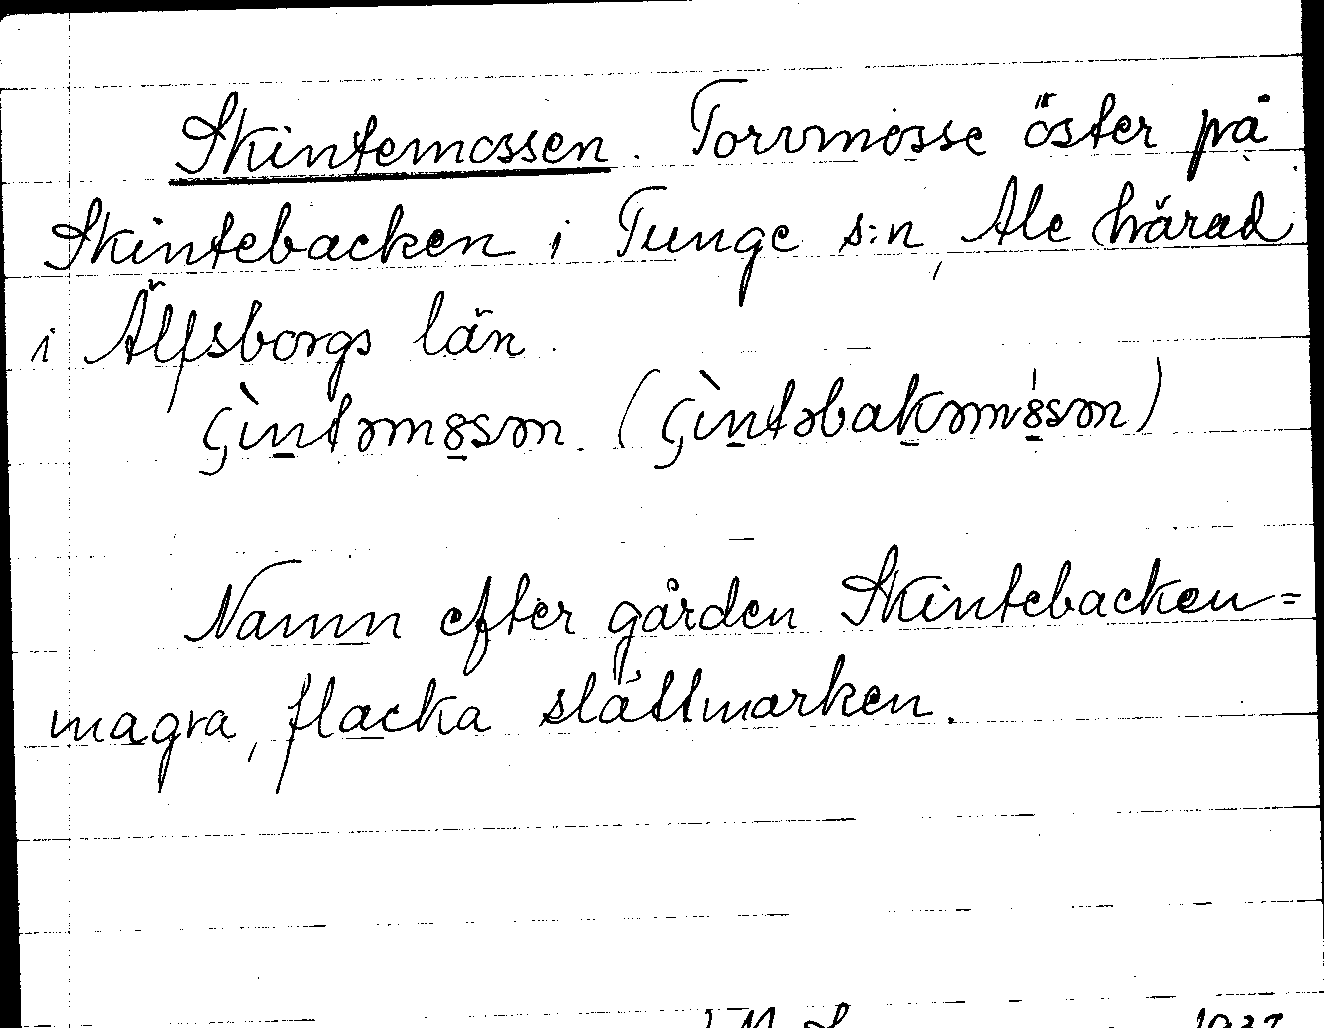 Skintemossen. Torvmosse öster på
Skintebacken i Tunge s:n, Ale härad
i Älfsborgs län.
ʂìntəm8sən. (ʂìntəbakəm8sən)
Namn efter gården Skintebacken =
magra, flacka slättmarken.